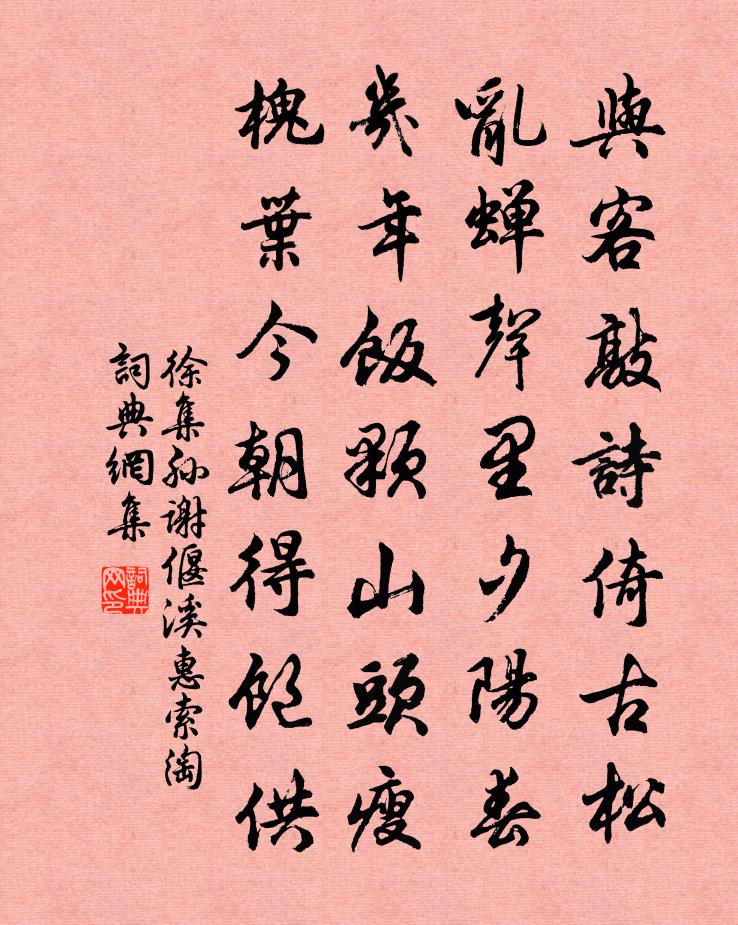 與客敲詩倚古松
亂蟬聲里夕陽舂
幾年飯顆山頭瘦
槐葉今朝得飽供
徐集孫謝偃溪惠索淘
詞典網集
詞典网印